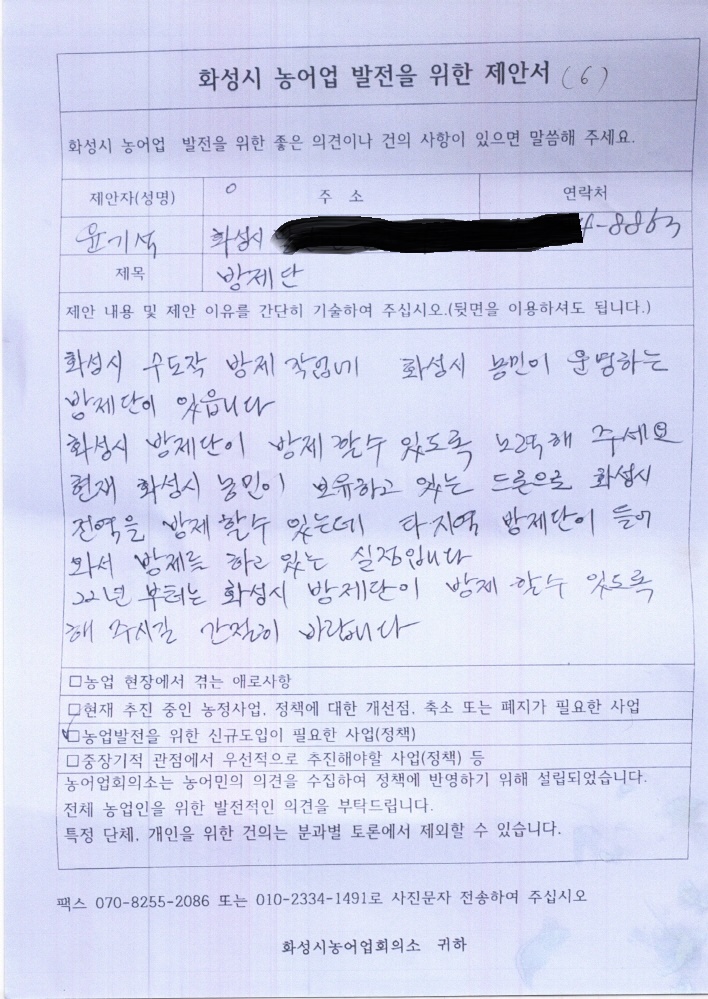 화성시 농어업 발전을 위한 제안서 (6)
화성시 농어업 발전을 위한 좋은 의견이나 건의 사항이 있으면 말씀해 주세요.
제안자(성명) 주 소 연락처
윤기석 화성시 -8863
제목 방제단
제안 내용 및 제안 이유를 간단히 기술하여 주십시오.(뒷면을 이용하셔도 됩니다.)
화성시 수도작 방제 작업에 화성시 농민이 운영하는
방제단이 있읍니다
화성시 방제단이 방제 할수 있도록 노력해 주세요
현재 화성시 농민이 보유하고 있는 드론으로 화성시
전역을 방제 할수 있는데 타지역 방제단이 들어
와서 방제를 하고 있는 실정입니다
22년 부터는 화성시 방제단이 방제 할수 있도록
해 주시길 간절히 바랍니다
□농업 현장에서 겪는 애로사항
□현재 추진 중인 농정사업, 정책에 대한 개선점, 축소 또는 폐지가 필요한 사업
□농업발전을 위한 신규도입이 필요한 사업(정책)
□중장기적 관점에서 우선적으로 추진해야할 사업(정책) 등
농어업회의소는 농어민의 의견을 수집하여 정책에 반영하기 위해 설립되었습니다.
전체 농업인을 위한 발전적인 의견을 부탁드립니다.
특정 단체, 개인을 위한 건의는 분과별 토론에서 제외할 수 있습니다.
팩스 070-8255-2086 또는 010-2334-1491로 사진문자 전송하여 주십시오
화성시농어업회의소 귀하